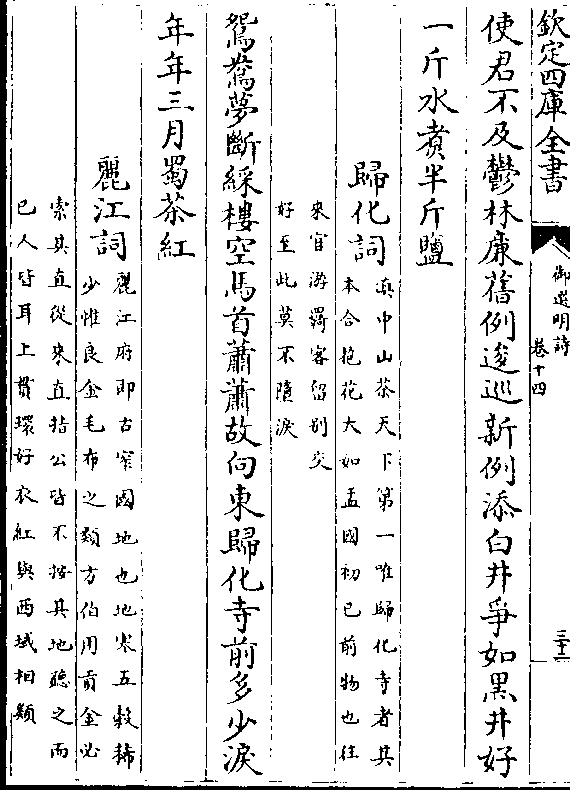 欽定四庫全書
御選明詩
卷十四
三十二
使君不及鬱林廉舊例逡巡新例添白井爭如黑井好
一斤水煮半斤鹽
歸化詞
滇中山茶天下第一唯歸化寺者其
本合抱花大如盂國初已前物也往
來官游羇客留別交
好至此莫不隕淚
鴛鴦夢斷綵樓空馬首蕭蕭故向東歸化寺前多少淚
年年三月蜀茶紅
麗江詞
麗江府即古䆮國地也地寒五穀稀
少惟良金毛布之類方伯用貢金必
索其直從來直指公皆不按其地聽之而
已人皆耳上貫環好衣紅與西域相類